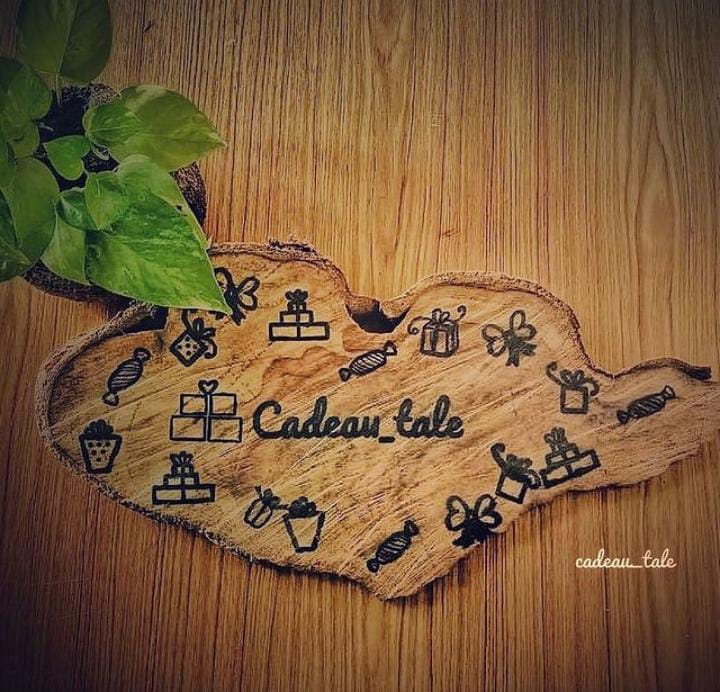 Cadeau_tale
cadeau_tale